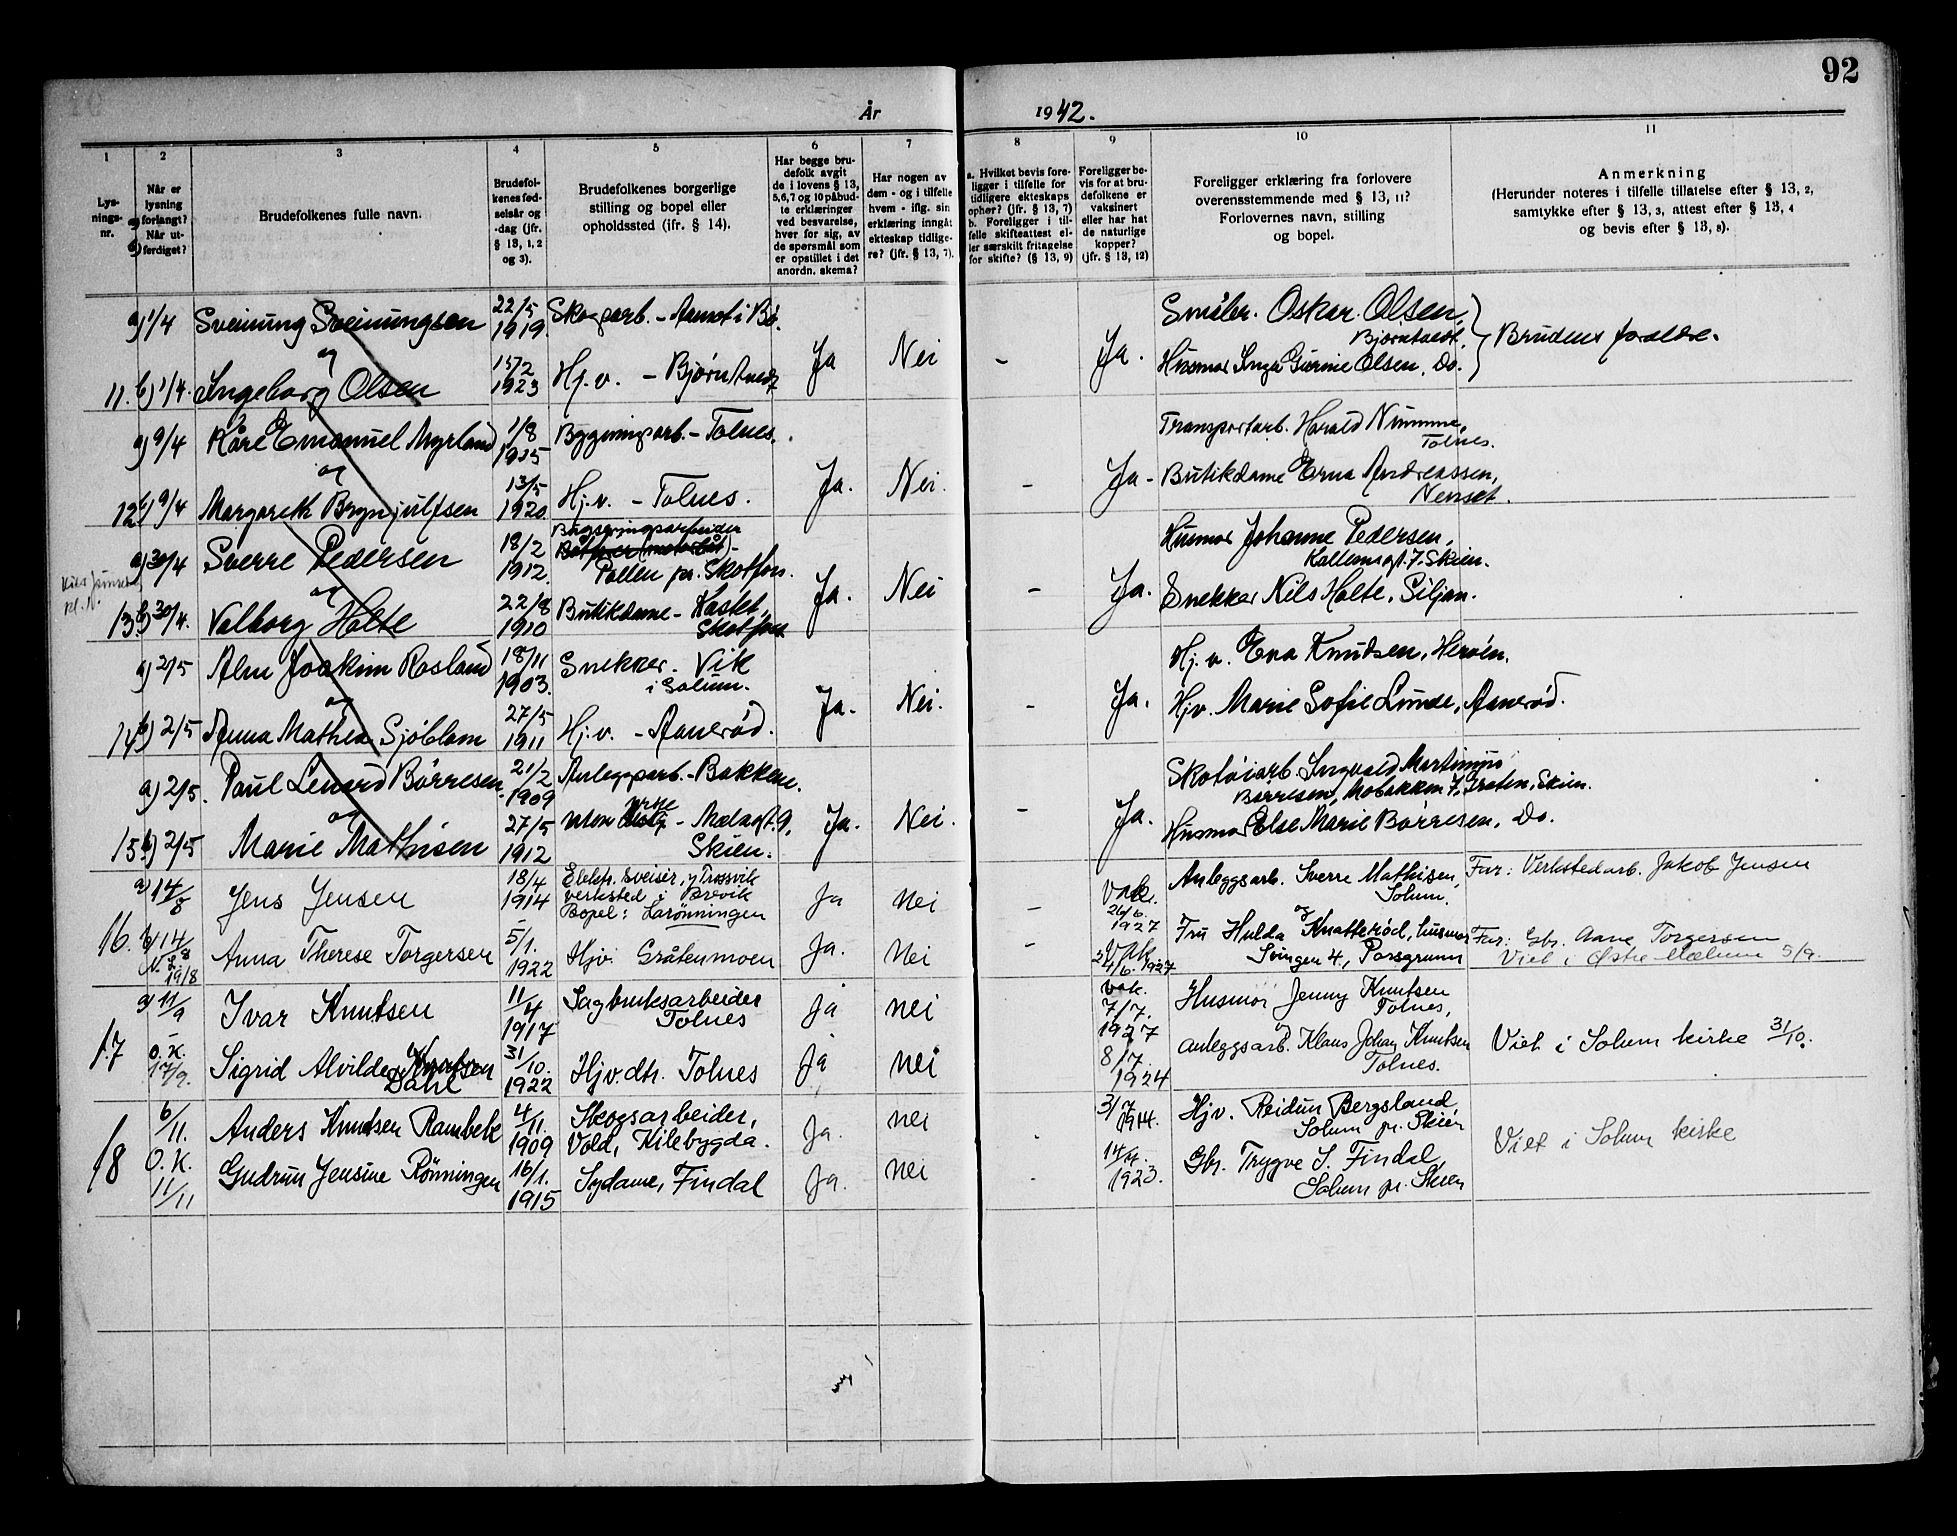 92
År 1942.
1 2 3 4 5 6 7 8 9 10 11
Lys-
nings-
nr.
Når er
lysning
a) forlangt?
Når ut-
b) ferdiget?
Brudefolkenes fulle navn.
Brudefol-
kenes fød-
selsår og
-dag (jfr.
§ 13, 1, 2
og 3).
Brudefolkenes borgerlige
stilling og bopel eller
opholdssted (jfr. § 14).
Har begge bru-
defolk avgit
de i lovens § 13,
5,6,7 og 10 påbud-
te erklæringer
ved besvarelse,
hver for sig, av
de spørsmål som
er opstillet i det
anordn. skema?
Har nogen av
dem - og i tilfelle
hvem - iflg. sin
erklæring inngåt
ekteskap tidlige-
re? (jfr. § 13, 7).
a. Hvilket bevis fore-
ligger i tilfelle for
tidligere ekteskaps
ophør? (jfr. § 13, 7)
b. Foreligger i til-
felle skifteattest el-
ler særskilt fritagelse
for skifte? (§ 13, 9)
Foreligger be-
vis for at bru-
defolkene er
vaksinert
eller har hat
de naturlige
kopper?
(jfr. § 13, 12)
Foreligger erklæring fra forlovere
overensstemmende med § 13, 11?
Forlovernes navn, stilling
og bopel.
Anmerkning
(Herunder noteres i tilfelle tillatelse efter § 13, 2,
samtykke efter § 13, 3, attest efter § 13, 4
og bevis efter § 13, 8).
a) 1/4 Sveinung Sveinungsen 22/5 1919. Skogsarb. - Aamot i Bø. Ja Nei - Ja. Småbr. Oskar Olsen,
Bjørntvedt.
og
11. b) 1/4. Ingeborg Olsen 15/2 1923 Hj.v. - Bjørntvedt Husmor Inga Gurine Olsen, Do. } Brudens foreldre.
a) 9/4 Kåre Emanuel Myrland 1/8 1915 Bygningsarb. - Tolnes. Ja. Nei. - Ja - Transportarb. Harald Numme,
Tolnes.
og
12. b) 9/4 Margareth Brynjulfsen 13/5 1920. Hj.v. - Tolnes. Butikdame Erna Andreassen,
Nenset.
a) 30/4 Sverre Pedersen 18/2 1912. Bugseringsarbeider
Pollen pr. Skotfoss. Ja. Nei - Ja. Husmor Johanne Pedersen,
7, Skien.
og
13. b) 30/4. Valborg Holte 22/8 1910 Butikdame - Kastet,
Skotfoss Snekker Nils Holte, Siljan.
a) 2/5 Alm Joakim Rosland 18/11 1903. Snekker - Vik
i Solum. Ja. Nei. - Ja. Hj.v. Eva Knudsen, Herøen.
og
14. b) 2/5 Anna Mathea Sjöblom 27/5 1911 Hj.v. - Aanerød. Hjv. Marie Sofie Lunde, Aanerød.
a) 2/5. Paul Lenard Børresen 21/2 1909 Anleggsarb. - Bakken. Ja. Nei. - Ja. Skotøiarb. Ingvald Martinius
Børresen, Mobakken 7, Gråten, Skien.
og
15. b) 2/5 Marie Mathisen 27/5 1912 Uten yrke - Mælagt. 9,
Skien. Husmor Else Marie Børresen, Do.
a) 14/8 Jens Jensen 18/4 1914 Elektr. sveiser, Trosvik
verksted i Brevik
Bopel: Larønningen Ja nei - Vaks. 26/6 1927 Anleggsarb. Sverre Mathisen,
Solum.
og
Far: Verkstedarb. Jakob Jensen
16. b) 14/8 N.S. 19/8 Anna Therese Torgersen 5/1. 1922 Hjv. Gråtenmoen Ja. nei - Vak. 1927 Fru Hulda Knatterød, husmor
Svingen 4, Porsgrunn
Far: Gbr. Aane Torgersen
Viet i Østre Mælum 5/9.
17 a) 11/9 Ivar Knutsen 11/4 1917 Sagbruksarbeider
Tolnes ja nei vak. 7/7. 1927 Husmor Jenny Knutsen
Tolnes,
og
O.K. 17/9. Sigrid Alvilde Knutsen
Dahl 31/10. 1922 Hjv.dtr. Tolnes ja nei 8/7. 1924 anleggsarb. Klaus Johan Knutsen
Tolnes.
Viet i Solum kirke 31/10.
18 6/11. Anders Knutsen Rambekk 4/11. 1909 Skogsarbeider,
Vold, Kilebygda. Ja. nei - 3/7 1914. Hjv. Reidun Bergsland
Solum pr. Skien
O.K. 11/11 Gudrun Jensine Rønningen 16/1. 1915 Sydame, Findal Ja. nei - 14/4. 1923. Gbr. Trygve S. Findal,
Solum pr. Skien
Viet i Solum kirke